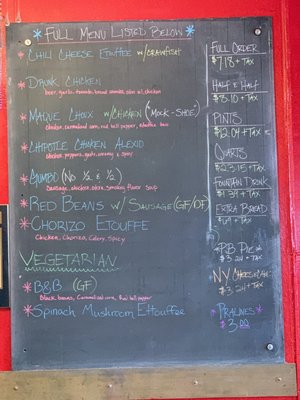 *Full Menu Listed Below*
* Chili Cheese Etouffee w/ crawfish
* Drunk Chicken
beer, garlic, tomato, bread crumbs, olive oil, chicken
* Maque Choux w/ Chicken (Mock-Shoe)
chicken, caramelized corn, red bell pepper, etouffee base
* Chipotle Chicken Alexio
chicken, peppers, garlic, creamy & spicy
* Gumbo (No ½ & ½)
Sausage, chicken, okra, smokey flavor soup
* Red Beans w/ Sausage (GF/DF)
* Chorizo Etouffe
Chicken, Chorizo, Celery, Spicy
Vegetarian
* B&B (GF)
Black beans, Caramelized corn, Red bell pepper
* Spinach Mushroom Ettouffee
Full Order
$7.18 + Tax
Half & Half
$8.10 + Tax
Pints
$12.04 + Tax
Quarts
$23.15 + Tax
Fountain Drink
+ Tax
Extra Bread
+ Tax
PB Pie
+ Tax
NY Cheesecake
+ Tax
*Pralines*
$3.00